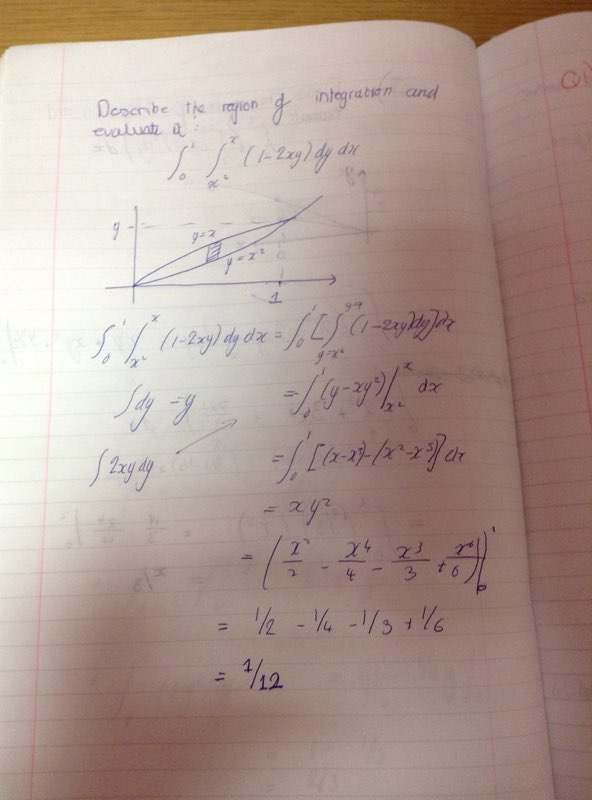 Describe the region of integration and
evaluate it:
∫₀¹ ∫ₓ²ˣ (1-2xy) dy dx
y
y=x
y=x²
1
∫₀¹ ∫ₓ²ˣ (1-2xy) dy dx = ∫₀¹ [∫ (1-2xy)dy] dx
y=x²
∫dy = y = ∫₀¹ (y-xy²)|ₓ²ˣ dx
∫2xy dy = ∫₀¹ [(x-x³)-(x²-x⁵)] dx
= xy²
= (x²/2 - x⁴/4 - x³/3 + x⁶/6)|₀¹
= 1/2 - 1/4 - 1/3 + 1/6
= 1/12